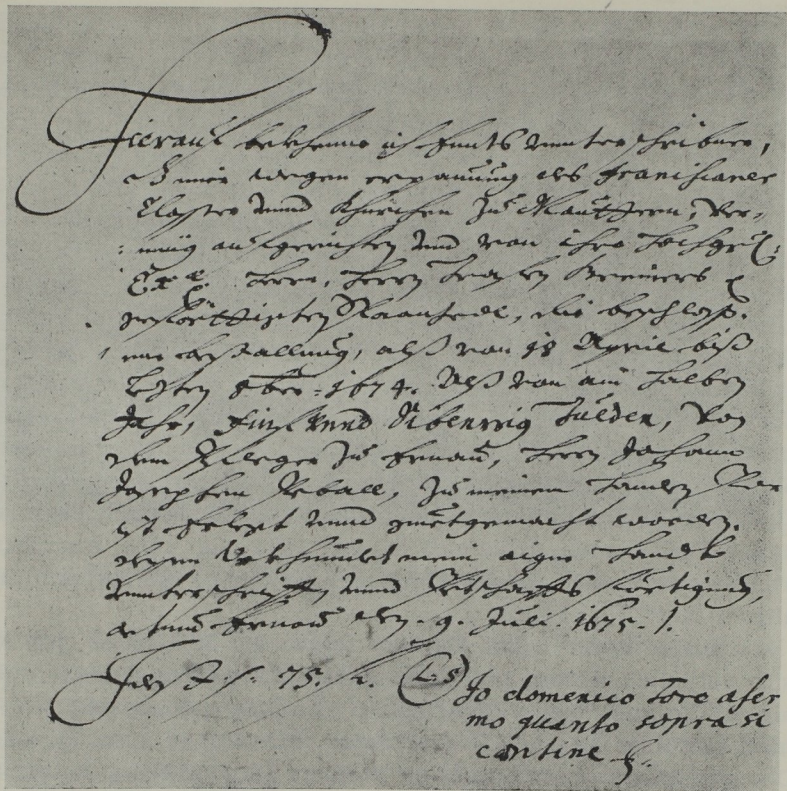 Hierauß bekhenne ich Endts Unnterschribner,
wegen erpauung des Franciscaner
Closster Unnd Khürchen Zu Mauttern, Ver-
müg aufgerichten Und von ihro Hochgräf:
Exc: Herrn, Herrn Grafen Breiners
die beschloss-
ne bestallung, alß von 18 April biß
Lesten 8ber: 1674. Alß von ain halben
Jahr, Fünf Unnd Sibenzig Gulden, Von
dem Pfleger Zu Ernau, Herrn Johann
Josephen Zu meinen Handen
ist erlegt Unnd guetgemacht worden.
dessen Urkhundet mein aigne Handt
Unnterschrifft Unnd Petschaffts förtigung,
actum Ernau den 9. Juli 1675.
Idest f: 75. k. (L.S)
Io domenico Tore afer
mo quanto sopra si
contine